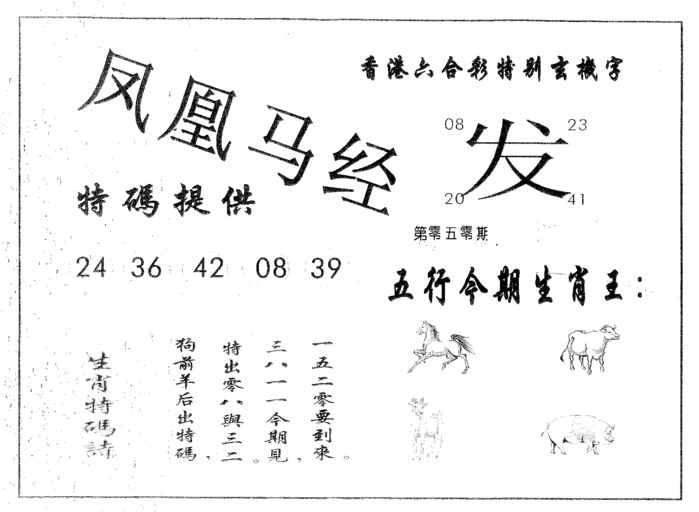 凤凰马经
香港六合彩特别玄機字
08 23
发
20 41
第零五零期
特碼提供
24 36 42 08 39
五行今期生肖王：
生肖特碼詩
狗前羊后出特碼，
特出零八與三二。
三八一一今期見，
一五二零要到來。